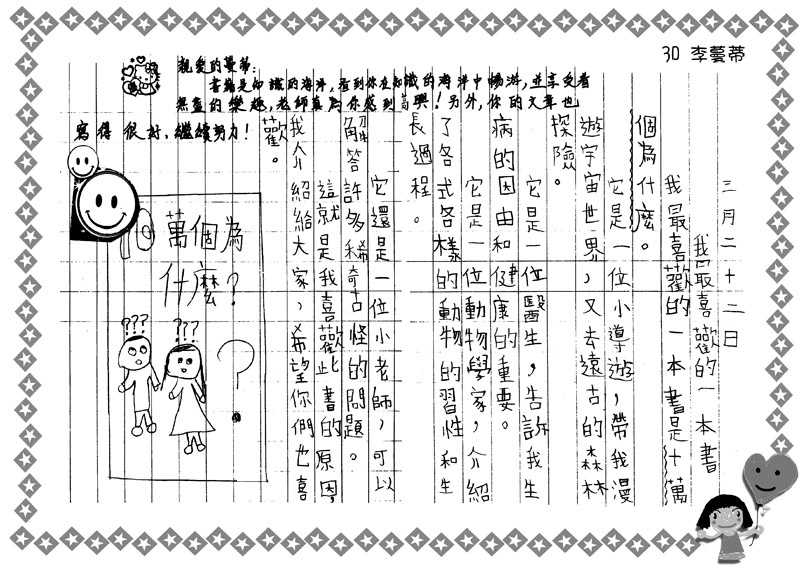 30 李蕓蒂
親愛的蔓蒂：
書籍是知識的海洋，看到你在知識的海洋中暢游，並享受着
無盡的樂趣，老師真為你感到高興！另外，你的文章也
寫得很好，繼續努力！
三月二十二日
我最喜歡的一本書
我最喜歡的一本書是十萬
個為什麼。
它是一位小導遊，帶我漫
遊宇宙世界，又去遠古的森林
探險。
它是一位醫生，告訴我生
病的因由和健康的重要。
它是一位動物學家，介紹
了各式各樣的動物的習性和生
長過程。
它還是一位小老師，可以
解答許多稀奇古怪的問題。
這就是我喜歡此書的原因
我介紹給大家，希望你們也喜
歡。
10萬個為
什麼？
??? ???
?